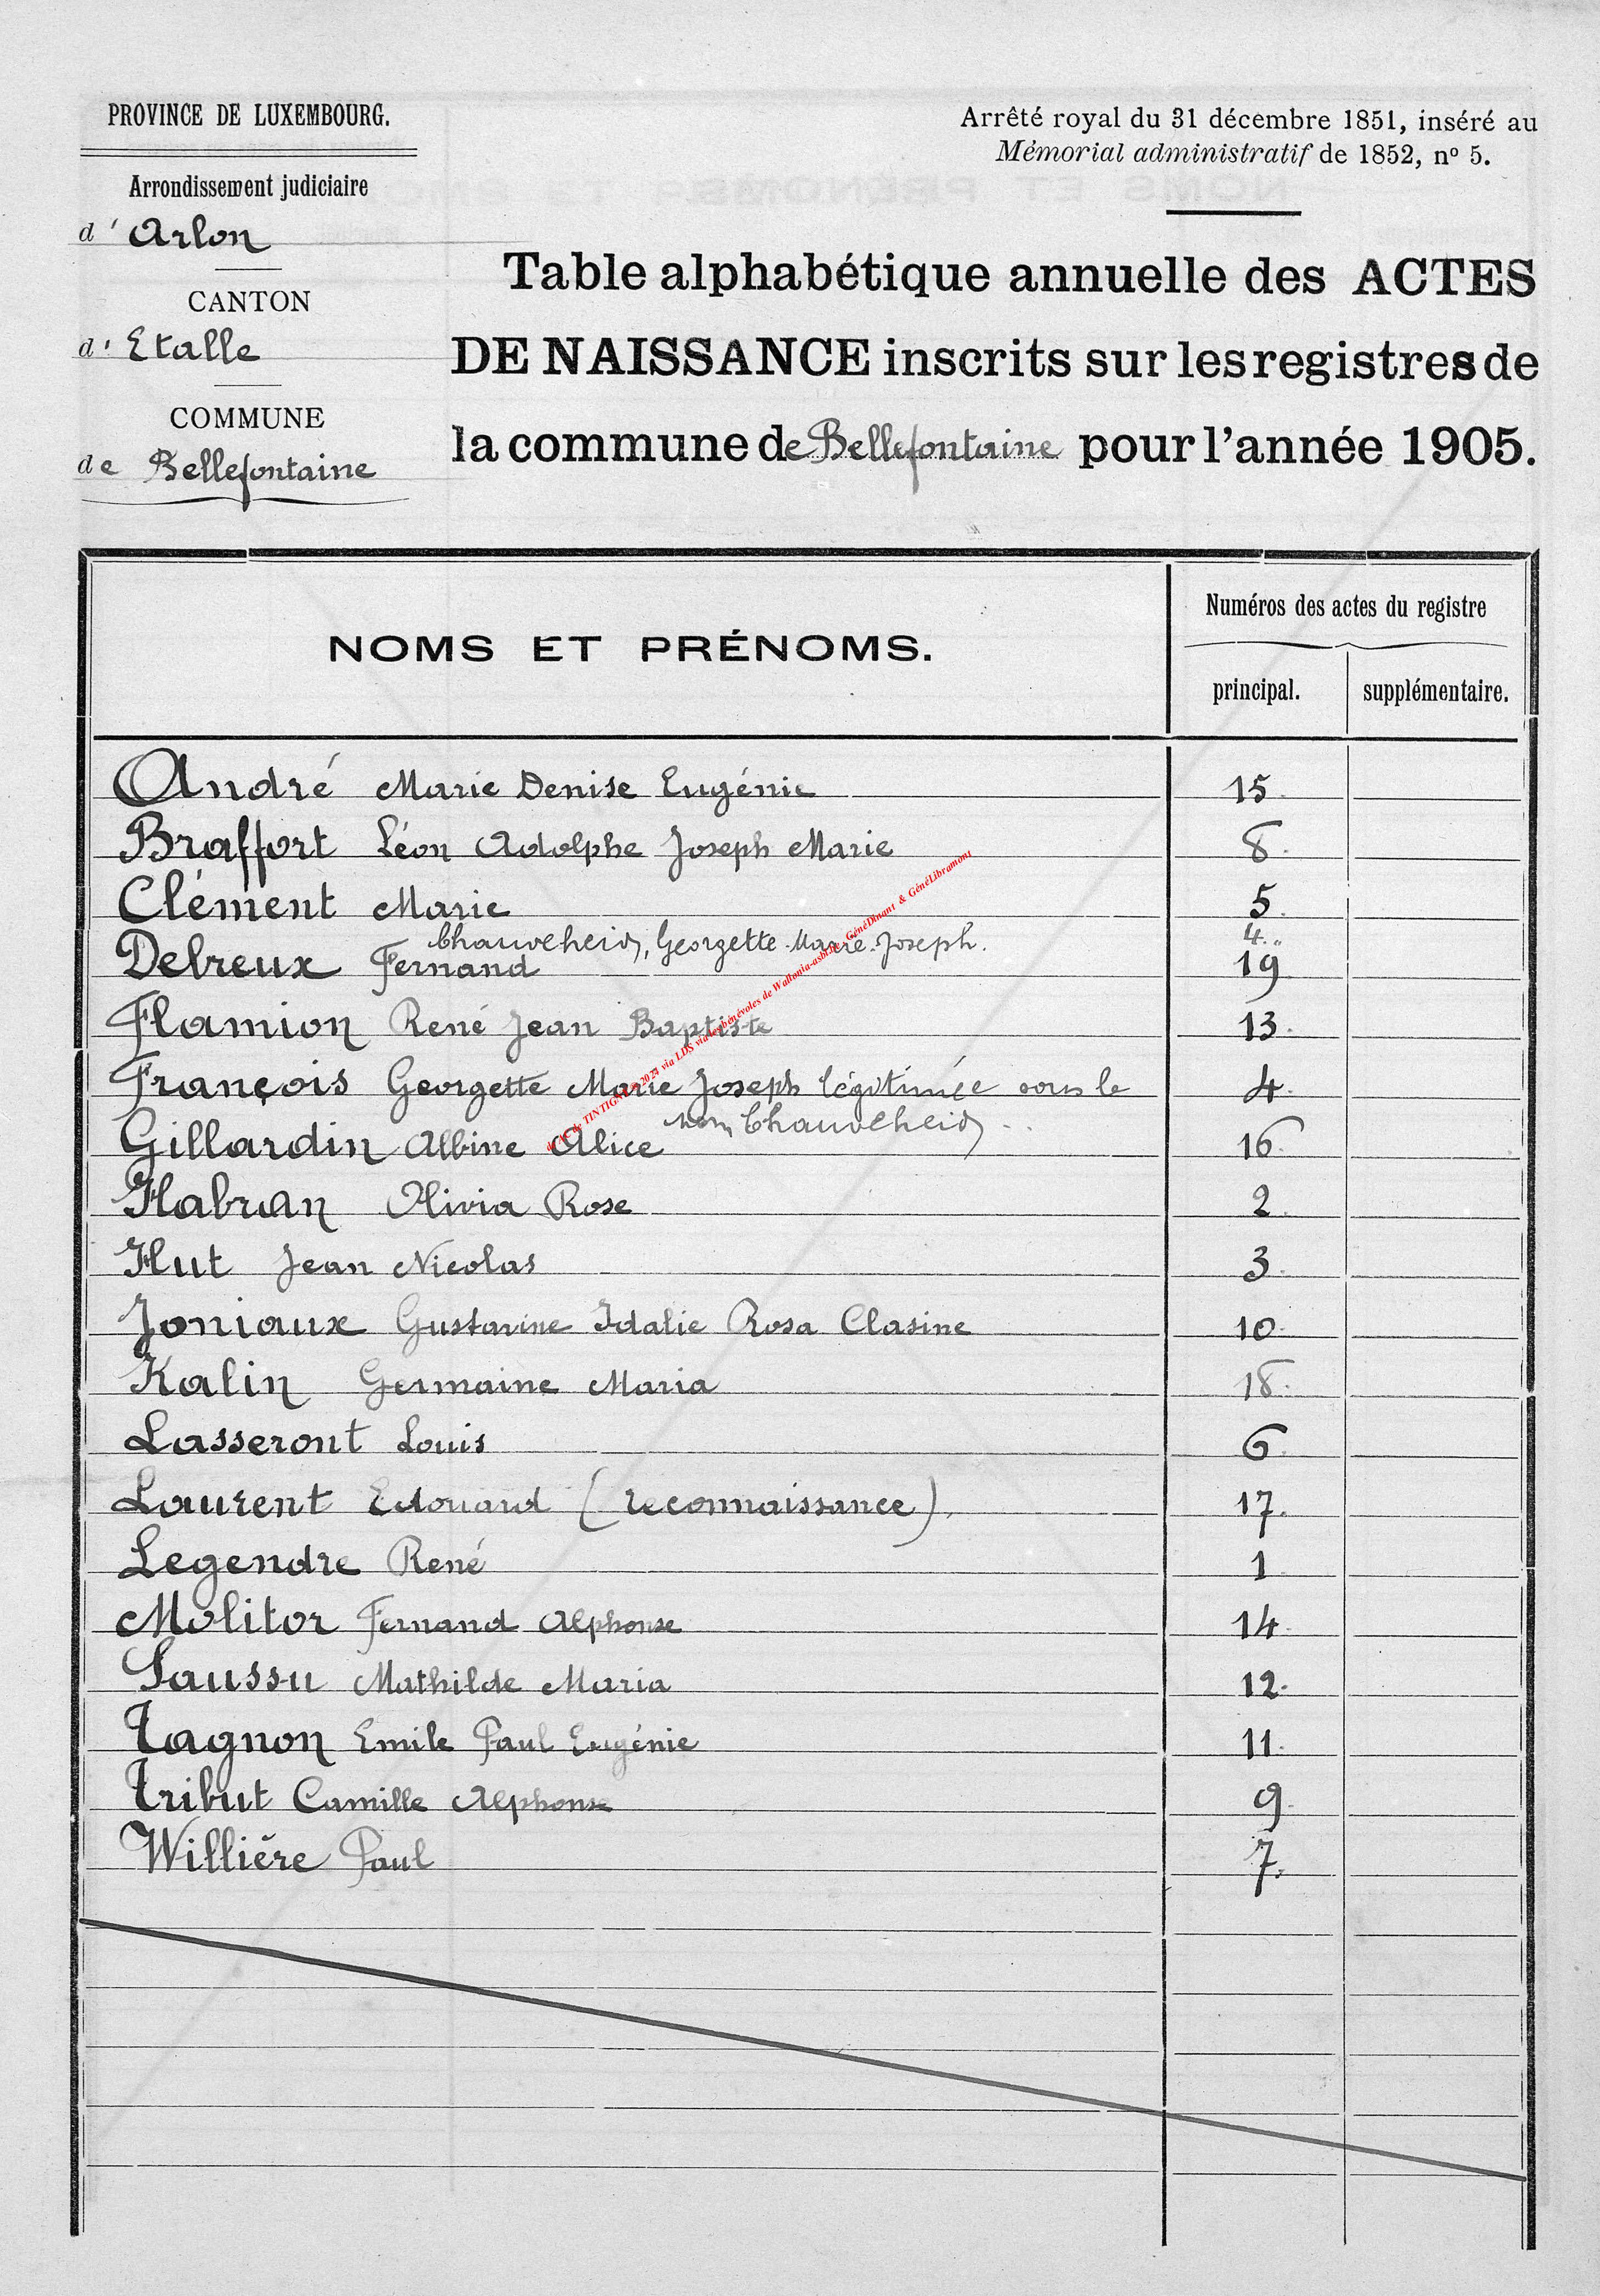 PROVINCE DE LUXEMBOURG.
Arrondissement judiciaire
d' Arlon
CANTON
d' Etalle
COMMUNE
de Bellefontaine
Arrêté royal du 31 décembre 1851, inséré au
Mémorial administratif de 1852, nº 5.
Table alphabétique annuelle des ACTES
DE NAISSANCE inscrits sur les registres de
la commune de Bellefontaine pour l'année 1905.
NOMS ET PRÉNOMS.
Numéros des actes du registre
principal. supplémentaire.
André Marie Denise Eugénie 15.
Braffort Léon Adolphe Joseph Marie 8.
Clément Marie 5.
Chauveheid, Georgette Marie Joseph. 4.
Delreux Fernand 19
Flamion René Jean Baptiste 13.
François Georgette Marie Joseph légitimée sous le 4.
nom Chauveheid
Gillardin Albine Alice 16.
Habran Olivia Rose 2.
Hut Jean Nicolas 3.
Joniaux Gustavine Idalie Rosa Clasine 10.
Kalin Germaine Maria 18.
Lasseront Louis 6.
Laurent Edouard (reconnaissance) 17.
Legendre René 1
Molitor Fernand Alphonse 14.
Saussu Mathilde Maria 12.
Tagnon Emile Paul Eugénie 11.
Tribut Camille Alphonse 9.
Willière Paul 7.
TINTIGNY 2024 via LDS via les bénévoles de Wallonia-asbl GénéDinant & GénéLibramont